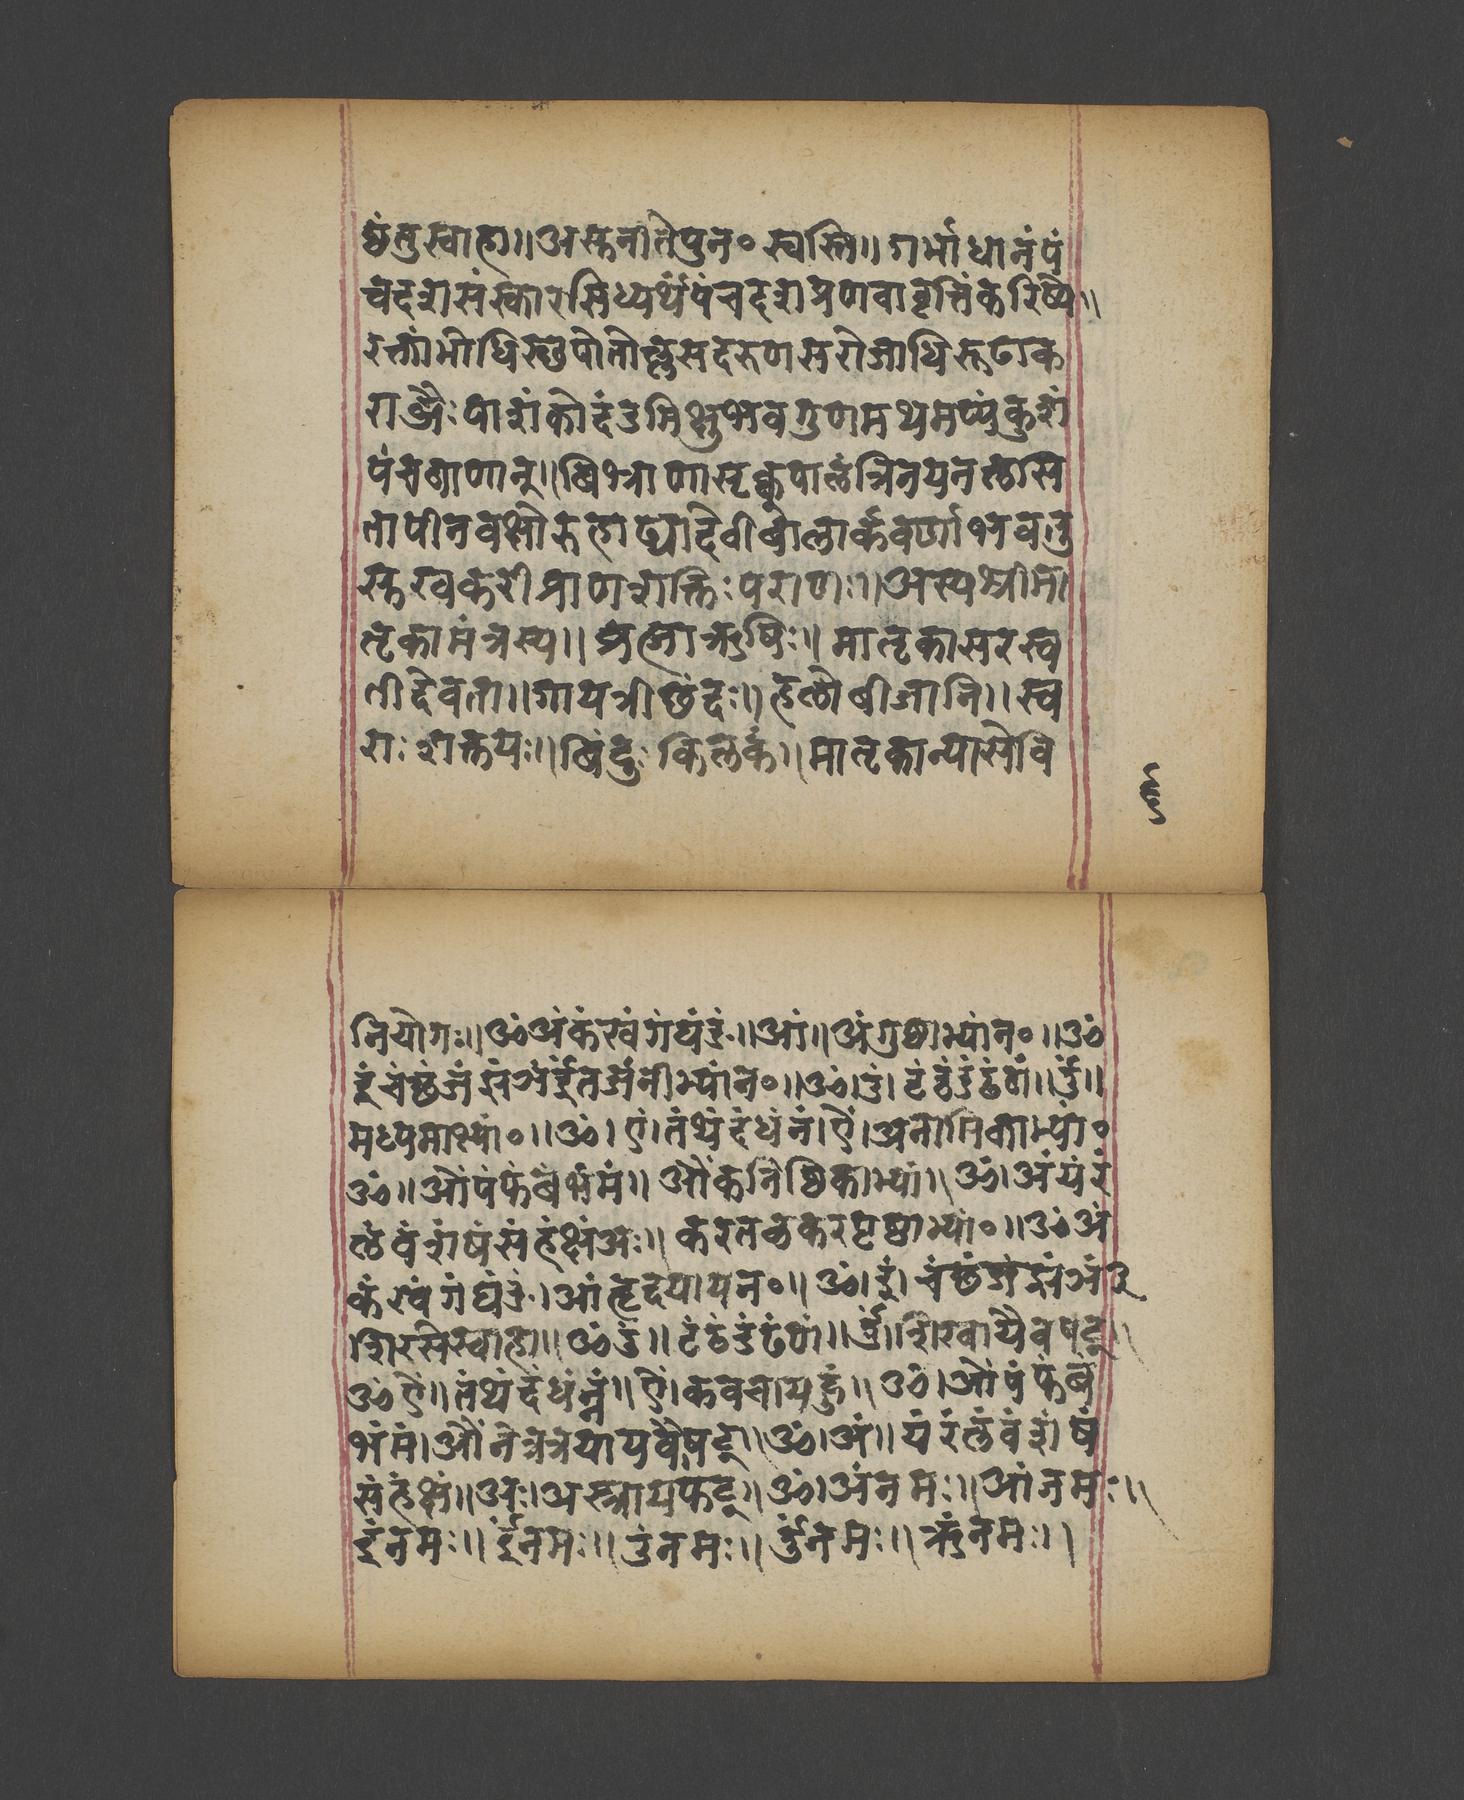 ष्ठंतुस्वाहा॥अस्तनीतेपुन॰स्वस्ति॥गर्भाधानंपं
चदशसंस्कारसिध्यर्थंपंचदशप्रणवावृत्तिंकरिष्ये॥
रक्तांभोधिस्छपोतोल्लसदरुणसरोजाधिरूढाक
राब्जैःपाशंकोदंडमिक्षुभवगुणमथमप्यंकुशं
पंचबाणान्॥बिभ्राणासृक्कपालंत्रिनयनलसि
तापीनवक्षोरुहाढ्यादेवीबालार्कवर्णाभवतु
सुखकरीप्राणशक्तिःपराणः॥अस्यश्रीमा
तृकामंत्रस्य॥ब्रह्माऋषिः॥मातृकासरस्व
तीद्देवता॥गायत्रीछंदः॥हलोबीजानि॥स्व
राःशक्तयः॥बिंदुःकिलकं॥मातृकान्यासेवि
६
नियोगः॥ॐअंकंखंगंघंङं॥आं॥अंगुष्ठाभ्यांन॰॥ॐ
इंचंछंजंझंञंईंतर्जनीभ्यांन॰॥ॐ।उं।टंठंडंढंणं॥ऊं॥
मध्यमाभ्यां॰॥ॐ।एं।तंथंदंधंनं।ऐं।अनामिकाभ्यां॰
ॐ॥ओंपंफंबंभंमं॥औंकनिष्ठिकाभ्यां॥ॐ।अंयंरं
लंवंशंषंसंहंक्षंअः॥करतलकरपृष्ठाभ्यां॰॥ॐअं
कंखंगंघंङं।आंहृदयायन॰॥ॐ।इं।चंछंजंझंञंई
शिरसेस्वाहा॥ॐउं॥टंठंडंढंणं॥ऊं।शिखायैवषट्॥
ॐऐं॥तंथंदंधंन्नं॥ऐं।कवचायहुं॥ॐ।ओंपंफंबं
भंमं।औंनेत्रत्रयायवौषट्॥ॐ।अं॥यंरंलंवंशंषं
संहंक्षं॥अः।अस्त्रायफट्॥ॐ।अंनमः॥आंनमः॥
इंनमः॥ईंनमः॥उंनमः॥ऊंनमः॥ऋंनमः॥